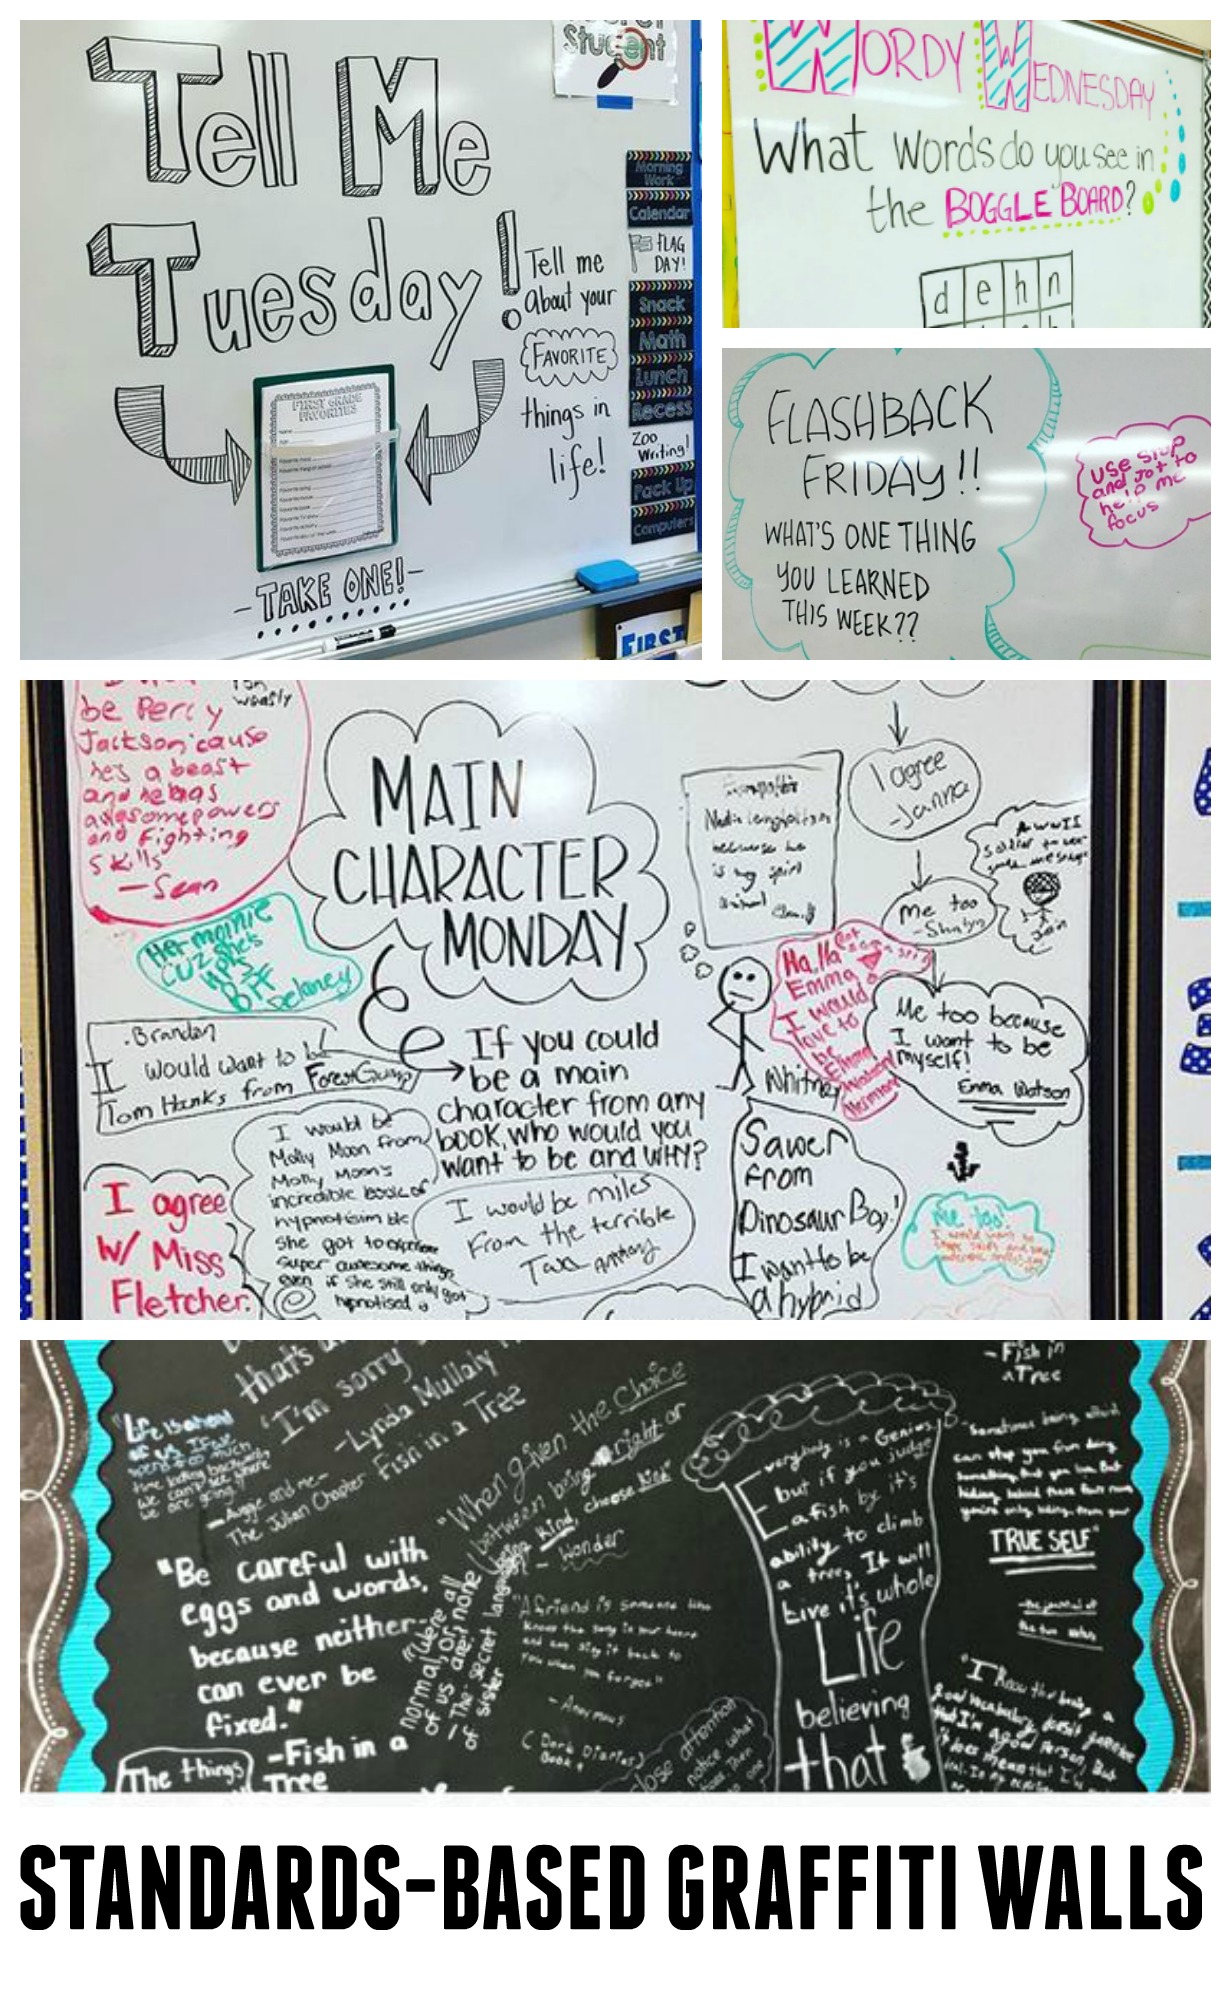 Student
Tell Me
Tuesday!
Tell me
about your
FAVORITE
things in
life!
FIRST GRADE
FAVORITES
-TAKE ONE!-
Morning
Work
Calendar
FLAG
DAY!
Snack
Math
Lunch
Recess
Zoo
Writing!
Pack Up
Computers
FIRST
WORDY WEDNESDAY
What words do you see in
the BOGGLE BOARD?
d e h n
FLASHBACK
FRIDAY!!
WHAT'S ONE THING
YOU LEARNED
THIS WEEK??
use stop
and jot to
help me
focus
be Percy
Jackson cause
he's a beast
and he has
awesome powers
and fighting
skills
-Sean
weasly
MAIN
CHARACTER
MONDAY
If you could
be a main
character from any
book, who would you
want to be and WHY?
Hermoinie
cuz she's
my
BFF
Delaney!
.Brandon
I would want to be
Tom Hanks from Forest Gump
I would be
Molly Moon from
Molly Moon's
incredible book of
hypnotisim b/c
she got to
super awesome things
even if she still only got
hpnotised
I agree
w/ Miss
Fletcher.
I would be miles
From the terrible
Two
because he
is my spirit
animal
I agree
-Janna
me too
Ha, Ha
Emma
I would
love to
be
Emma
Watson!
Whitney
Me too because
I want to be
myself!
Emma Watson
Sawer
From
Dinosaur Boy!
I want to be
a hybrid
Me too!
that's
"I'm sorry
-Lynda Mullaly
Fish in a Tree
- Auggie and me -
The Julian Chapter
"When given the choice
between being right or
being kind, choose kind"
- Wonder
"Be careful with
eggs and words,
because neither
can ever be
fixed."
-Fish in a
Tree
The things
"We're all
normal, or none
of us are."
- The secret language
of sister
"A friend is someone who
knows the song in your heart
and can sing it back to
you when you forget"
- Anonymous
(Dork Diaries)
Book
close attention
notice what
Then
Everybody is a Genius
but if you judge
a fish by it's
ability to climb
a tree, It will
Live it's whole
Life
believing
that
- Fish in
a Tree
"Sometimes being afraid
can stop you from doing
something that you love But
hiding behind these fears means
you're only hiding from your
TRUE SELF"
"I know that having a
good vocabulary doesn't guarantee
that I'm a good person, But
it does mean that I've
STANDARDS-BASED GRAFFITI WALLS